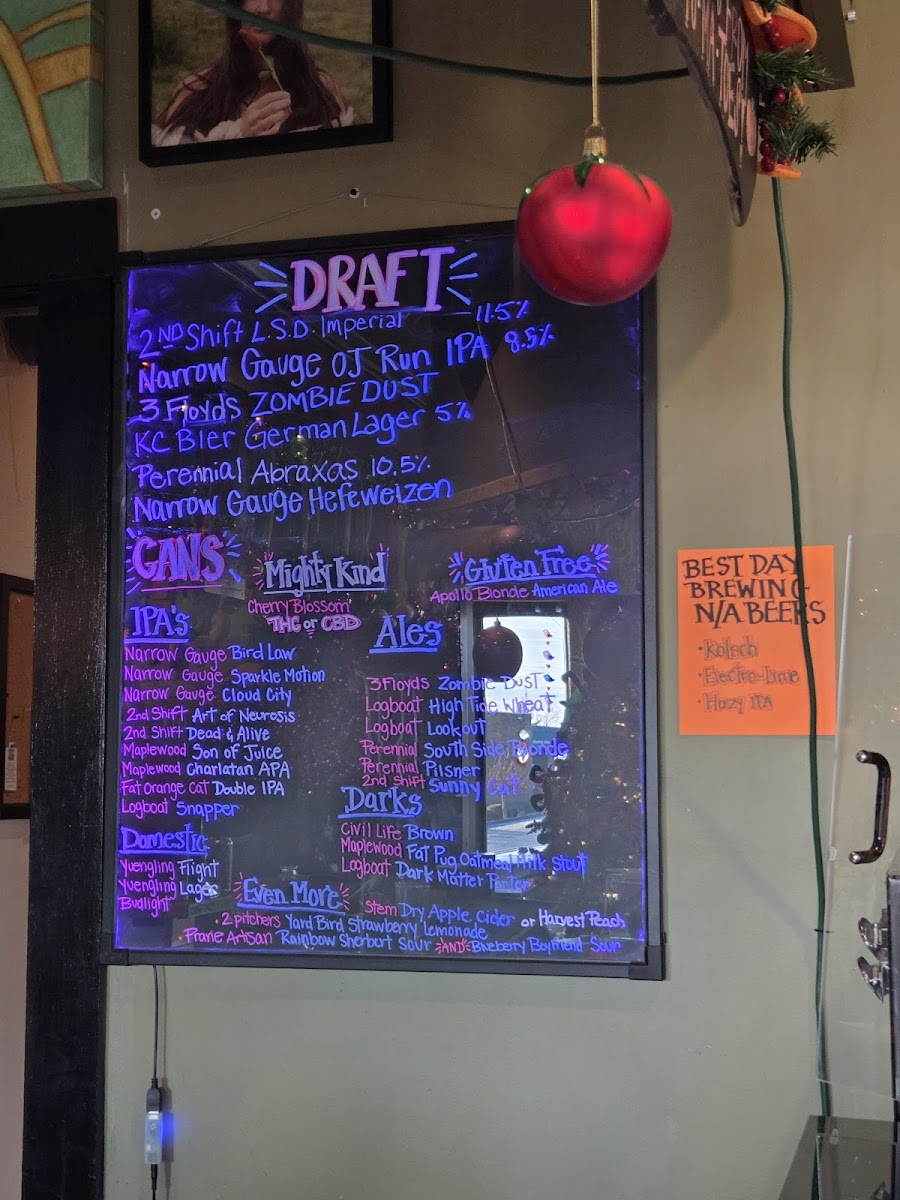 DRAFT
2ND Shift L.S.D. Imperial 11.5%
Narrow Gauge OJ Run IPA 8.5%
3 Floyds ZOMBIE DUST
KC Bier German Lager 5%
Perennial Abraxas 10.5%
Narrow Gauge Hefeweizen
CANS
Mighty Kind
Cherry Blossom
THC or CBD
Gluten Free
Apollo Blonde American Ale
IPA's
Narrow Gauge Bird Law
Narrow Gauge Sparkle Motion
Narrow Gauge Cloud City
2nd Shift Art of Neurosis
2nd Shift Dead & Alive
Maplewood Son of Juice
Maplewood Charlatan APA
Fat Orange Cat Double IPA
Logboat Snapper
Ales
3 Floyds Zombie Dust
Logboat High Tide Wheat
Logboat Lookout
Perennial South Side Blonde
Perennial Pilsner
2nd Shift Sunny Cat
Darks
Civil Life Brown
Maplewood Fat Pug Oatmeal Milk Stout
Logboat Dark Matter Porter
Domestic
Yuengling Flight
Yuengling Lager
Budlight
Even More
Stem Dry Apple Cider or Harvest Peach
• 2 pitchers Yard Bird Strawberry Lemonade
• Prarie Artisan Rainbow Sherburt Sour AND Blueberry Boyfriend Sour
BEST DAY
BREWING
N/A BEERS
• Kolsch
• Electro-Lime
• Hazy IPA